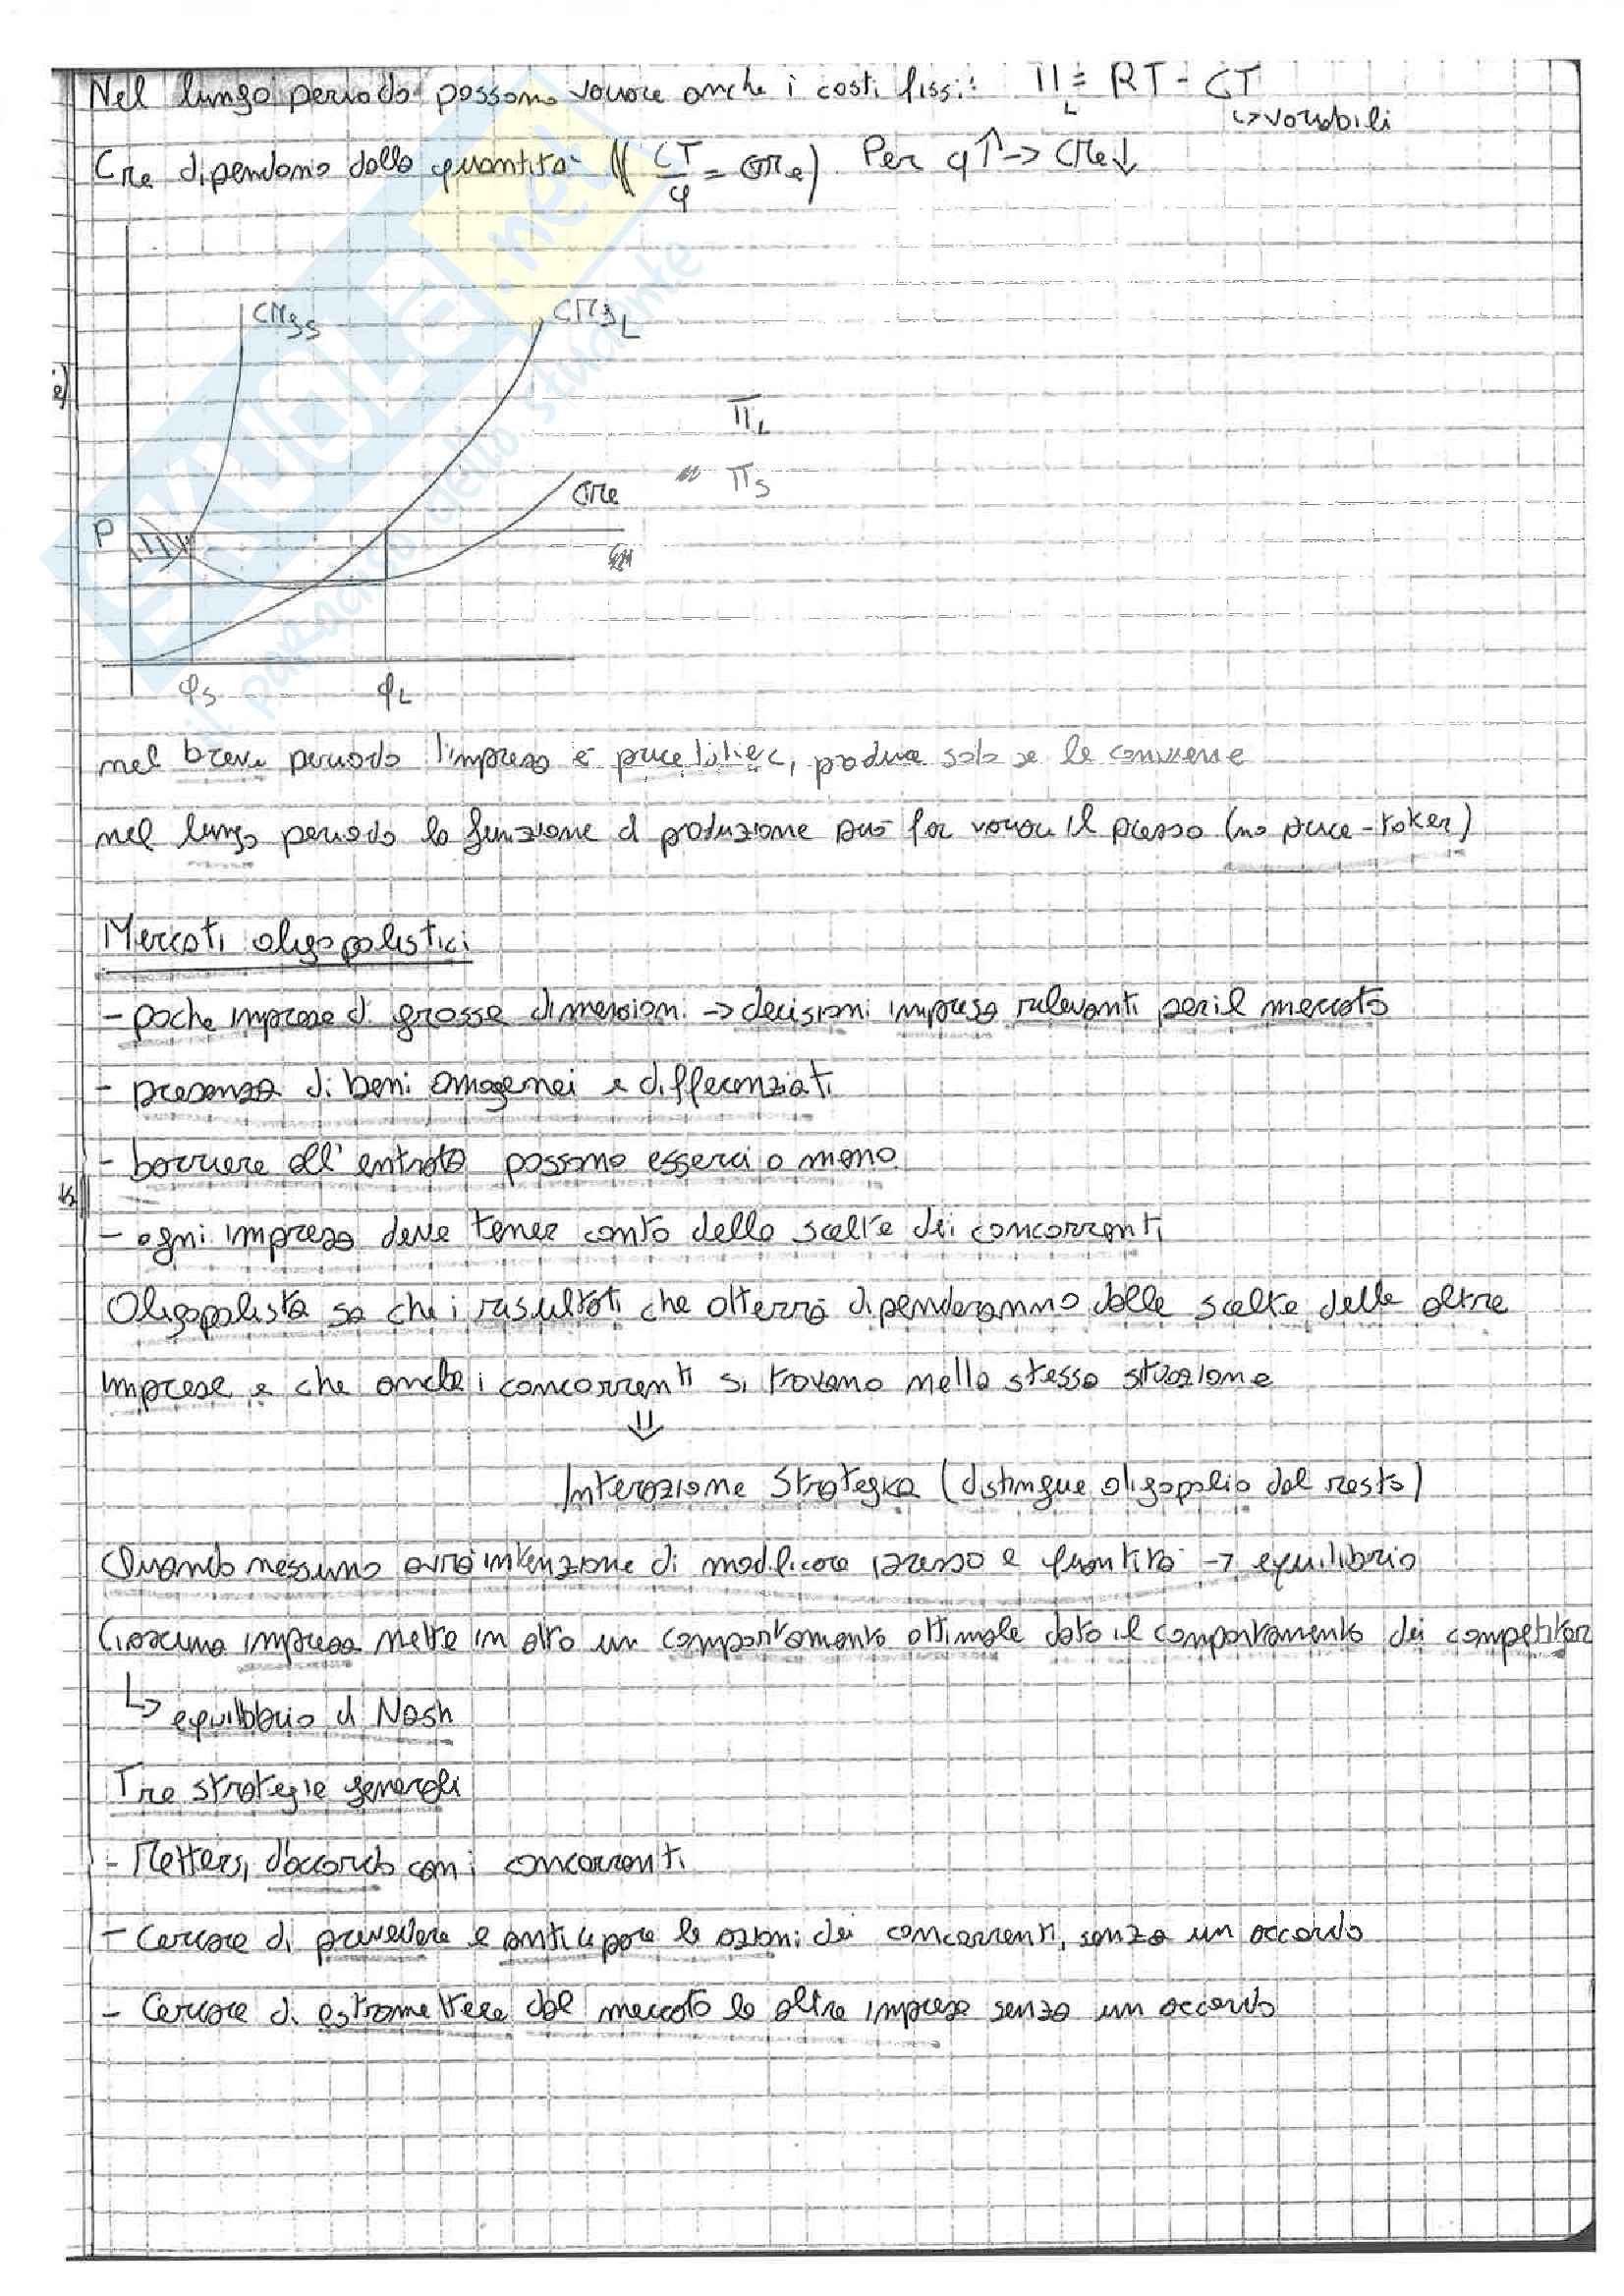 Nel lungo periodo possono variare anche i costi fissi: Π_L = RT - CT
↳ variabili
CMe dipendono dalla quantità (CT/q = CMe). Per q↑ → CMe↓
CMg_S
CMg_L
Π_L
Π_S
CMe
P
q_S
q_L
nel breve periodo l'impresa è price taker, produce solo se le conviene
nel lungo periodo la funzione di produzione può far variare il prezzo (no price-taker)
Mercati oligopolistici
- poche imprese di grosse dimensioni → decisioni impresa rilevanti per il mercato
- presenza di beni omogenei e differenziati
- barriere all'entrata possono esserci o meno
- ogni impresa deve tener conto delle scelte dei concorrenti
Oligopolista sa che i risultati che otterrà dipenderanno dalle scelte delle altre
imprese e che anche i concorrenti si trovano nella stessa situazione
⇓
Interazione Strategica (distingue oligopolio dal resto)
Quando nessuno avrà intenzione di modificare prezzo e quantità → equilibrio
Ciascuna impresa mette in atto un comportamento ottimale dato il comportamento dei competitor
↳ equilibrio di Nash
Tre strategie generali
- Mettersi d'accordo con i concorrenti
- Cercare di prevedere e anticipare le azioni dei concorrenti, senza un accordo
- Cercare di estromettere dal mercato le altre imprese senza un accordo
il paradiso dello studente